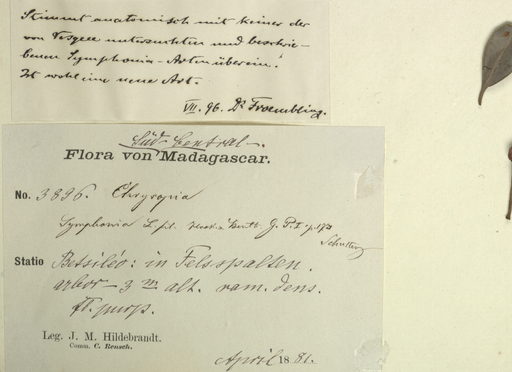 Stimmt anatomisch mit keiner der
von Vesque untersuchten und beschrie-
benen Symphonia-Arten überein!
Ist wohl eine neue Art.
VII. 96. Dr Froembling.
Süd Central-
Flora von Madagascar.
No. 3896. Chrysopia
Symphonia L. fil. Benth. G. P. I p. 173
Statio Betsiléo: in Felsspalten.
arbor - 3 m alt. ram. dens.
fl. purp.
Leg. J. M. Hildebrandt.
Comm. C. Rensch.
April 1881.